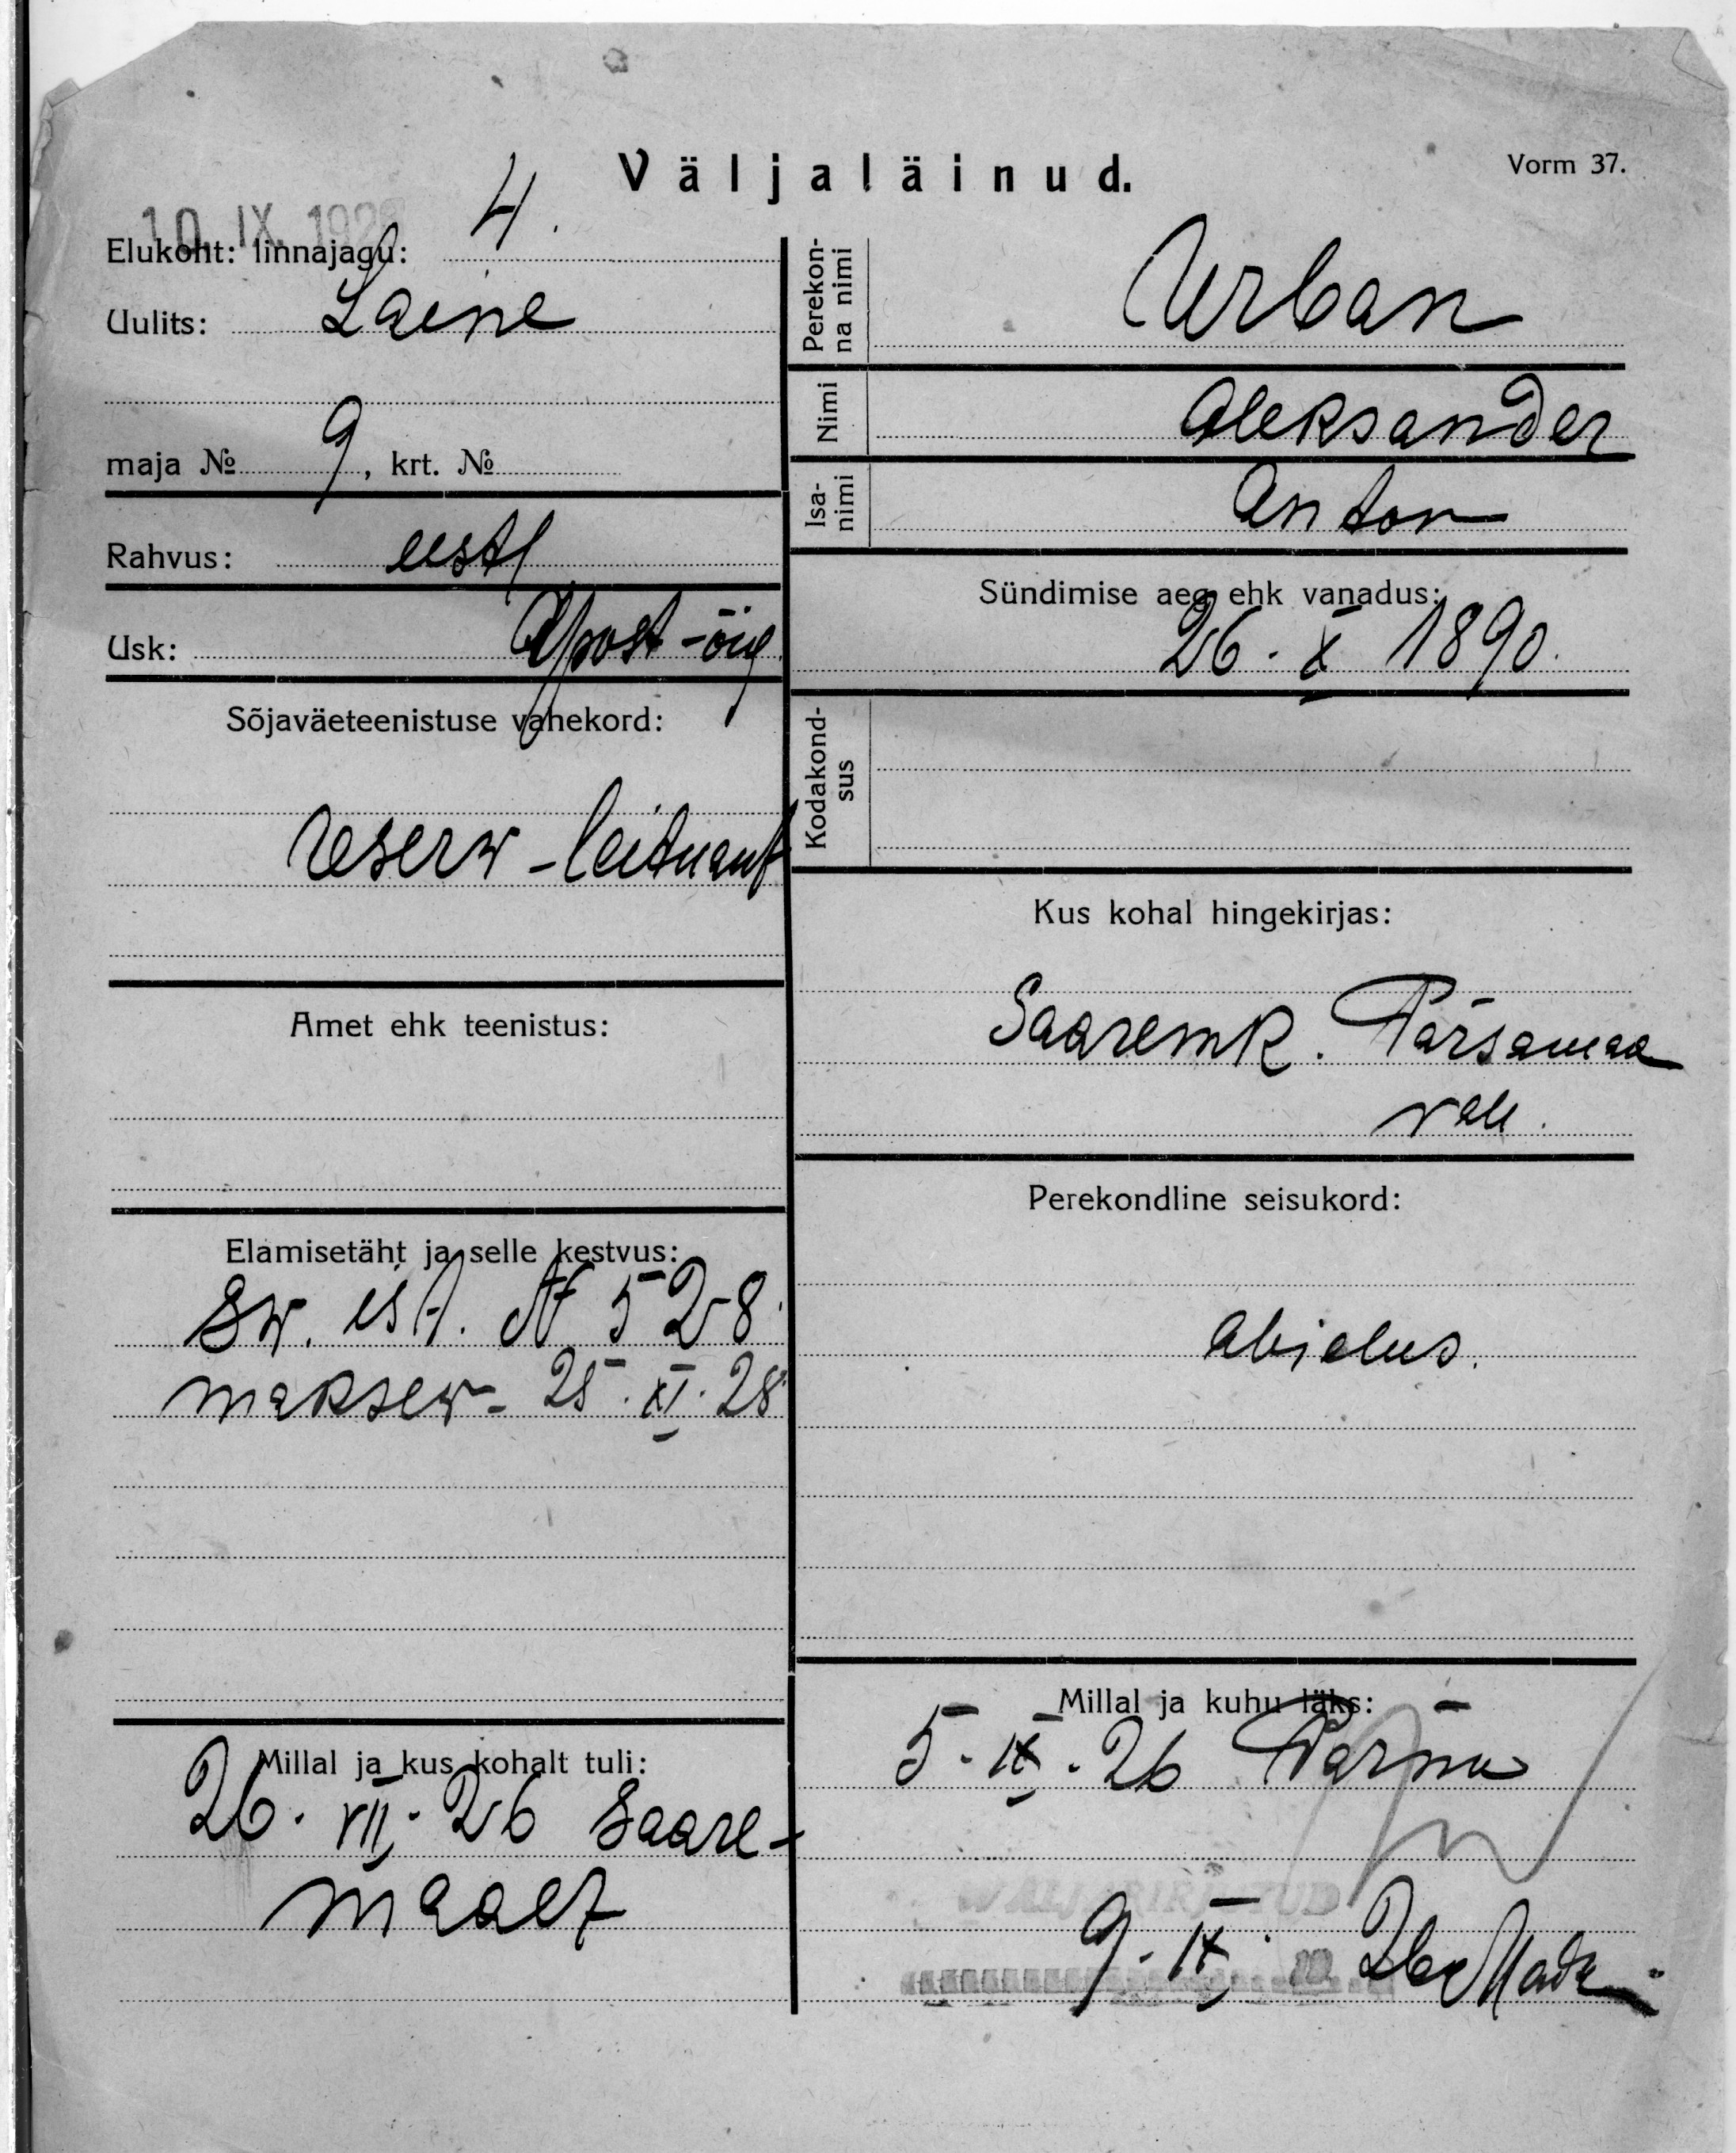 Väljaläinud.
Vorm 37.
10. IX. 192
Elukoht: linnajagu: 4.
Uulits: Laine
maja № 9, krt. №
Rahvus: eestl
Usk: Apost-õig
Sõjaväeteenistuse vahekord:
reserw-leitnant
Amet ehk teenistus:
Elamisetäht ja selle kestvus:
sw. ist. № 528
maksew- 25. XI. 28
Millal ja kus kohalt tuli:
26. VII. 26 Saare-
maalt
Perekon-
na nimi
Urban
Nimi
Aleksander
Isa-
nimi
Anton
Sündimise aeg ehk vanadus:
26. X 1890.
Kodakond-
sus
Kus kohal hingekirjas:
Saaremk. Pärsamaa
wall.
Perekondline seisukord:
abielus.
Millal ja kuhu läks:
5. IX. 26 Pärnu
9. IX. 26